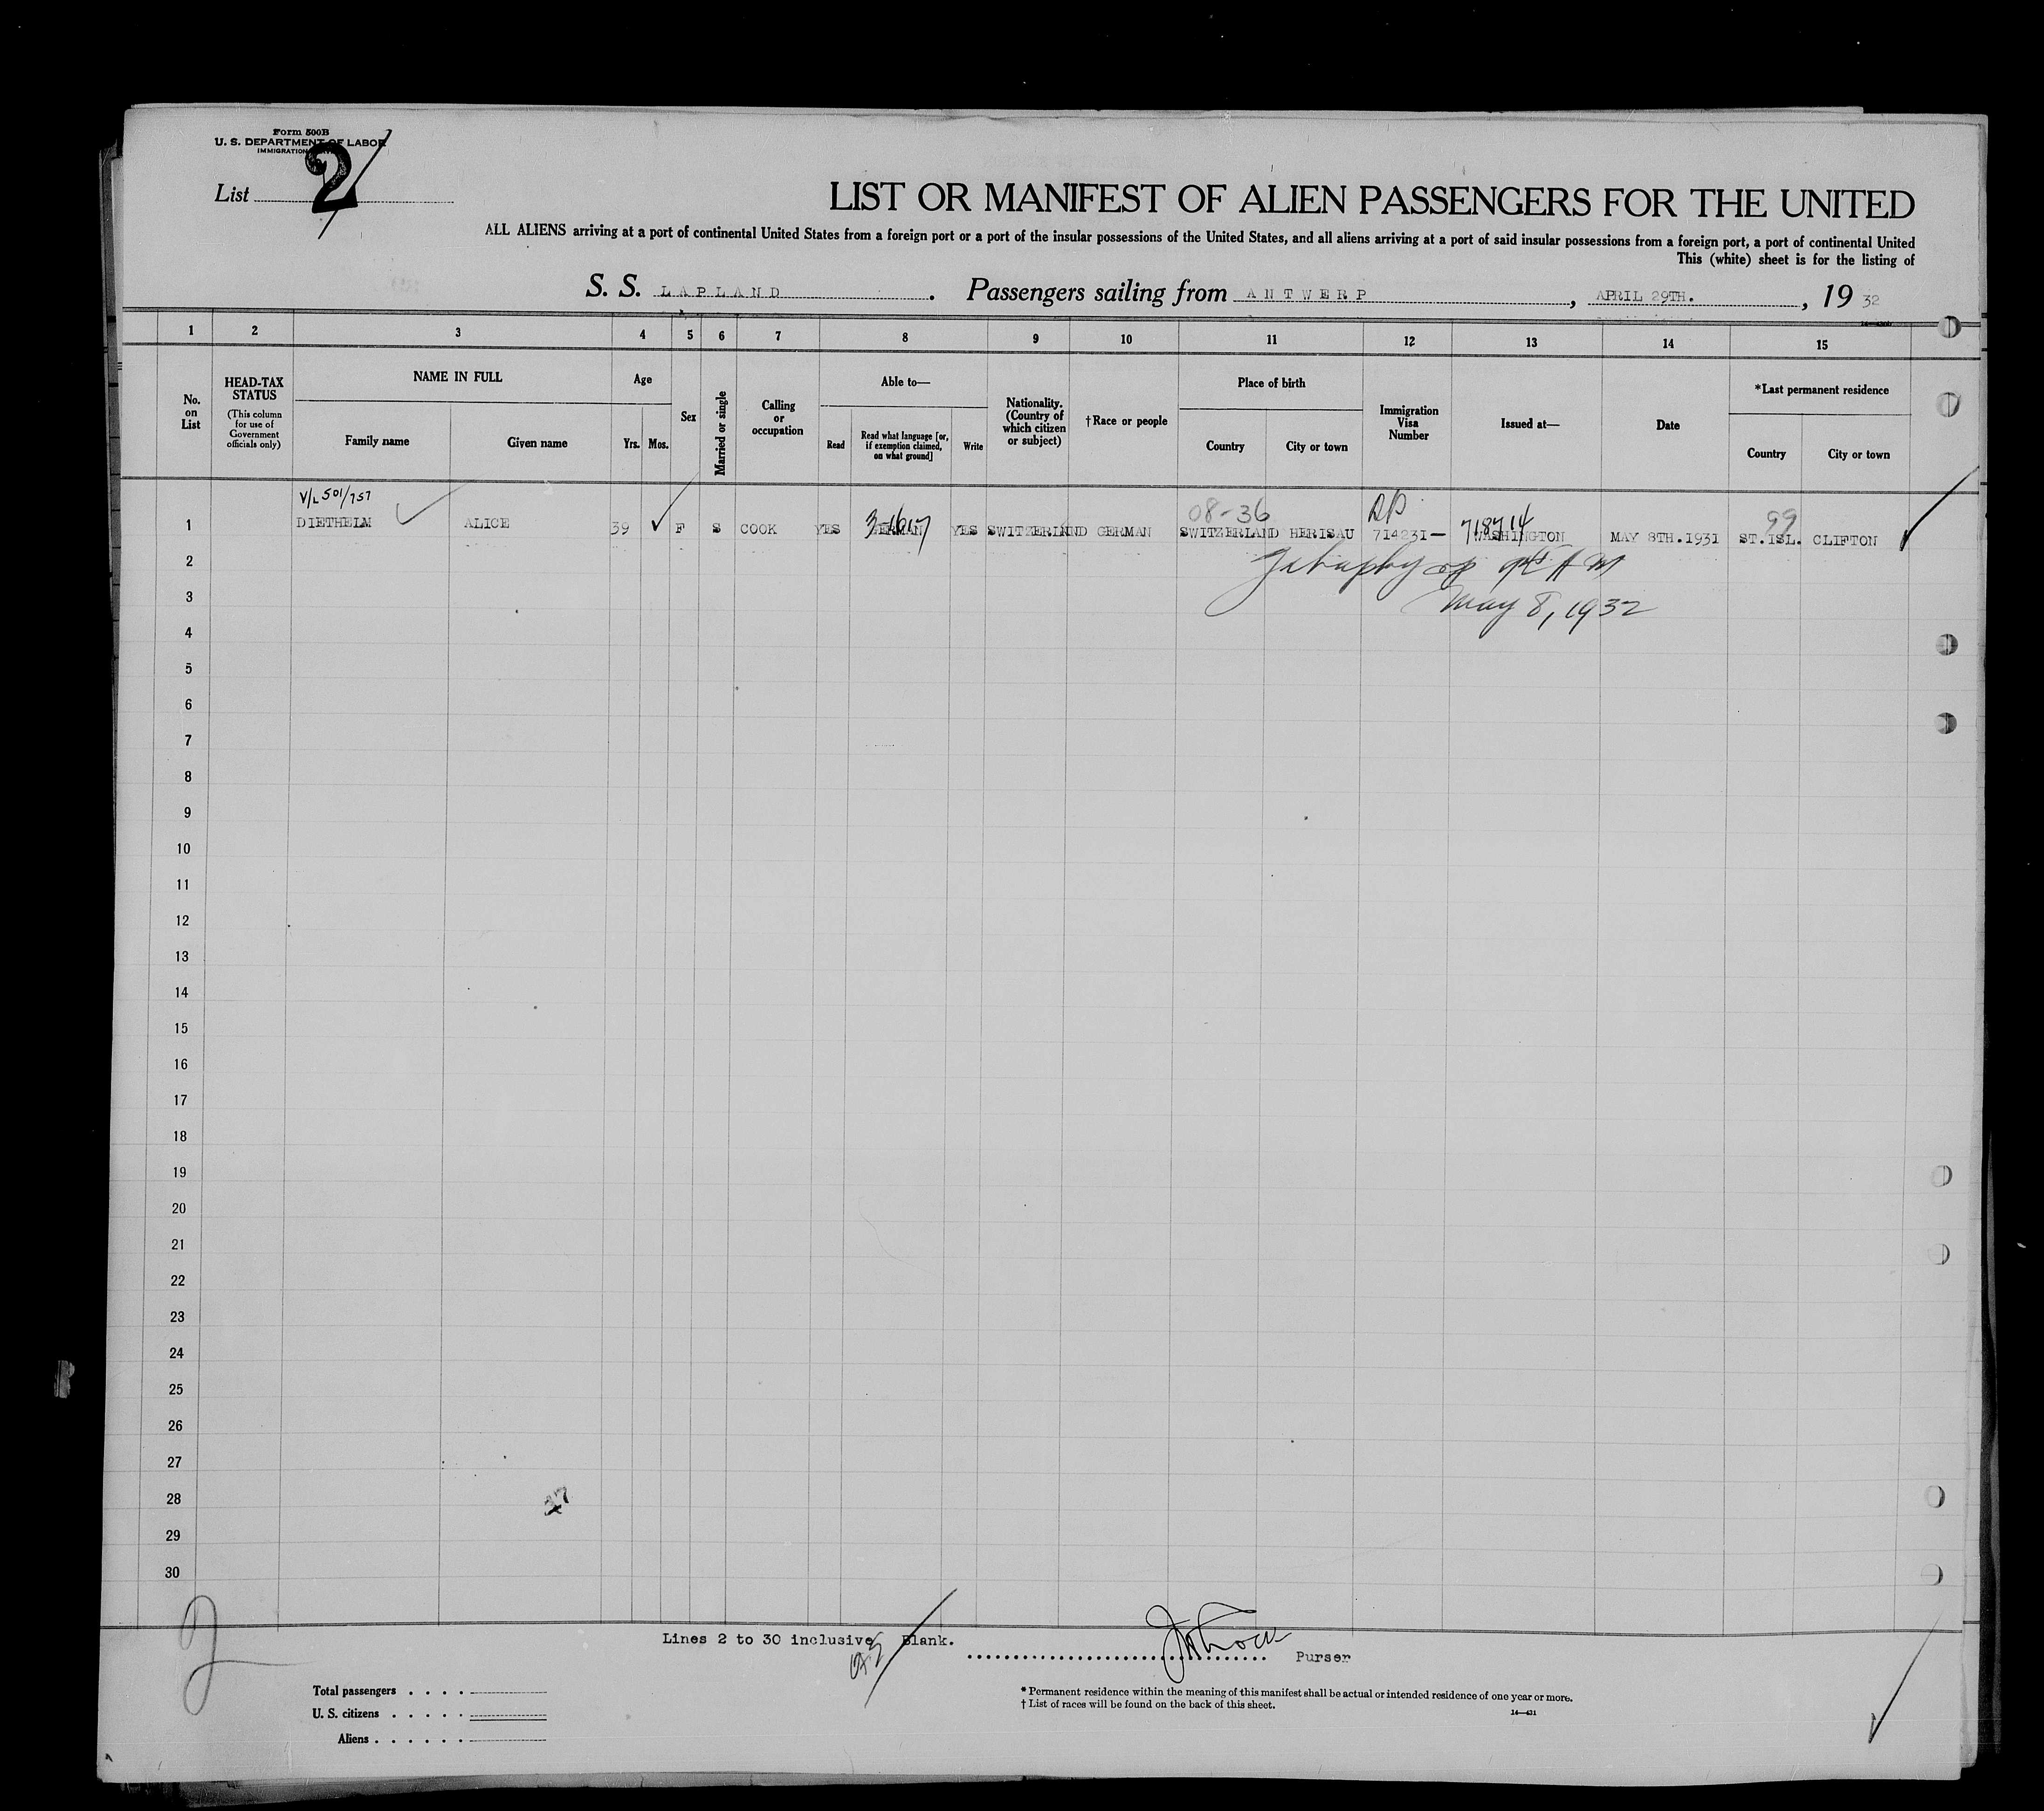 Form 500B
U. S. DEPARTMENT OF LABOR
IMMIGRATION
List 2
LIST OR MANIFEST OF ALIEN PASSENGERS FOR THE UNITED
ALL ALIENS arriving at a port of continental United States from a foreign port or a port of the insular possessions of the United States, and all aliens arriving at a port of said insular possessions from a foreign port, a port of continental United
This (white) sheet is for the listing of
S. S. LAPLAND. Passengers sailing from ANTWERP, APRIL 29TH., 1932
1 2 3 4 5 6 7 8 9 10 11 12 13 14 15
No. on List
HEAD-TAX STATUS
(This column for use of Government officials only)
NAME IN FULL
Family name Given name
Age
Yrs. Mos.
Sex
Married or single
Calling or occupation
Able to—
Read
Read what language [or, if exemption claimed, on what ground]
Write
Nationality. (Country of which citizen or subject)
†Race or people
Place of birth
Country City or town
Immigration Visa Number
Issued at—
Date
*Last permanent residence
Country City or town
V/L 501/757 08-36 RP 718714 99
1 DIETHELM ALICE 39 F S COOK YES GERMAN YES SWITZERLAND GERMAN SWITZERLAND HERISAU 714231— WASHINGTON MAY 8TH.1931 ST.ISL. CLIFTON
2
3 May 8, 1932
4
5
6
7
8
9
10
11
12
13
14
15
16
17
18
19
20
21
22
23
24
25
26
27
28
29
30
2
Lines 2 to 30 inclusive Blank.
Purser
Total passengers
U. S. citizens
Aliens
* Permanent residence within the meaning of this manifest shall be actual or intended residence of one year or more.
† List of races will be found on the back of this sheet.
14—431